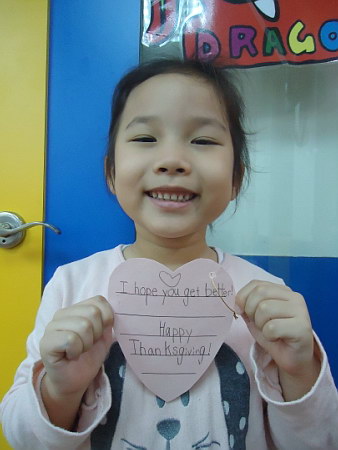 DRAGO
I hope you get better
Happy
Thanksgiving!